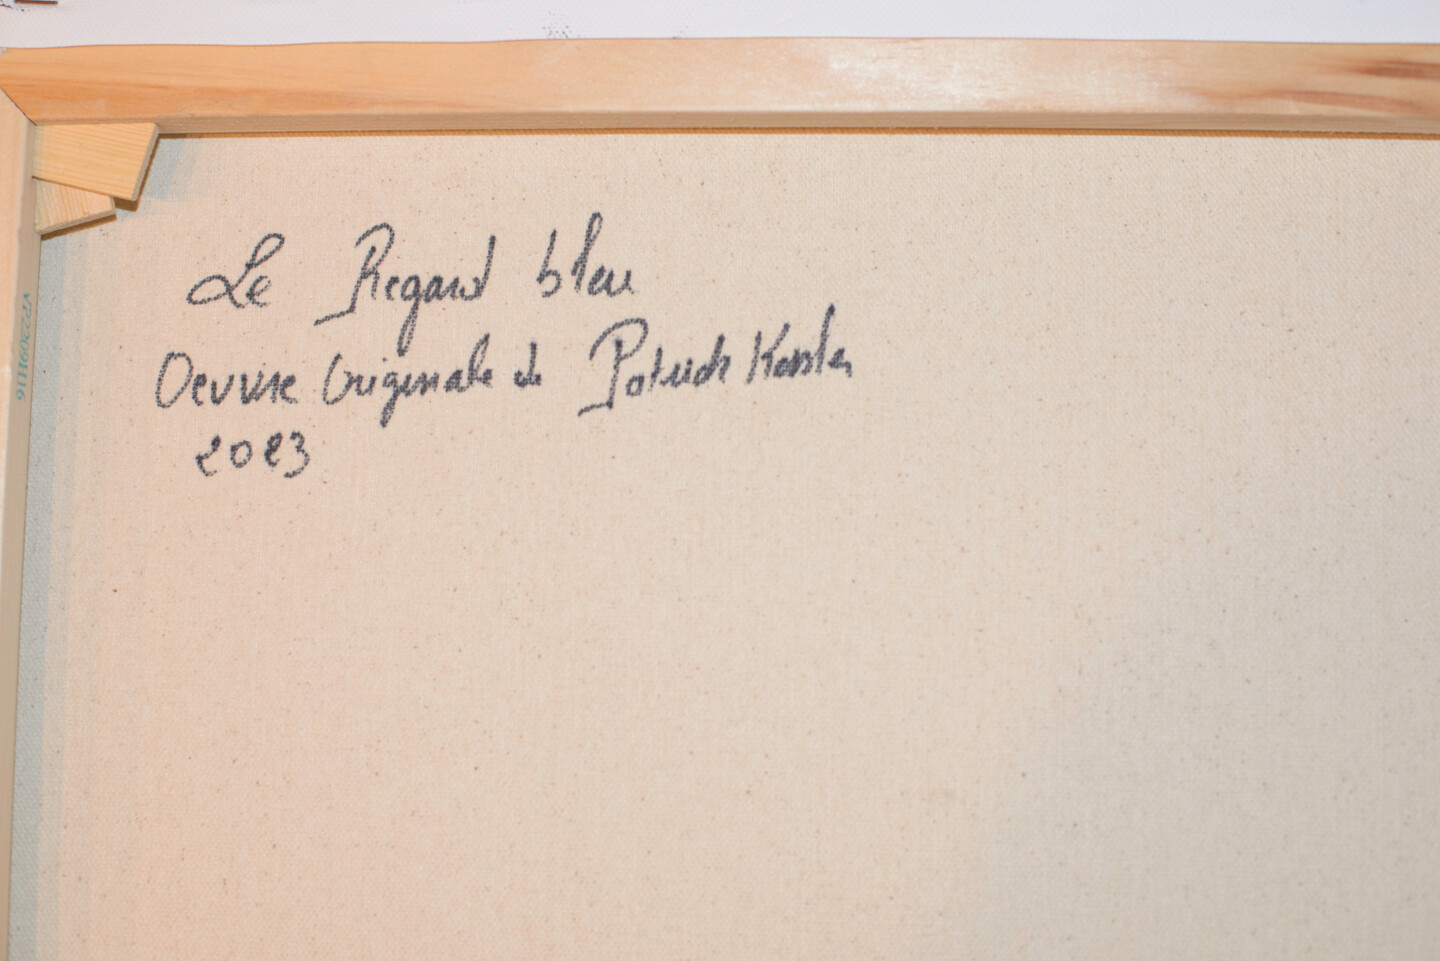 Le Regard bleu
Oeuvre Originale de Patrick Kessler
2023